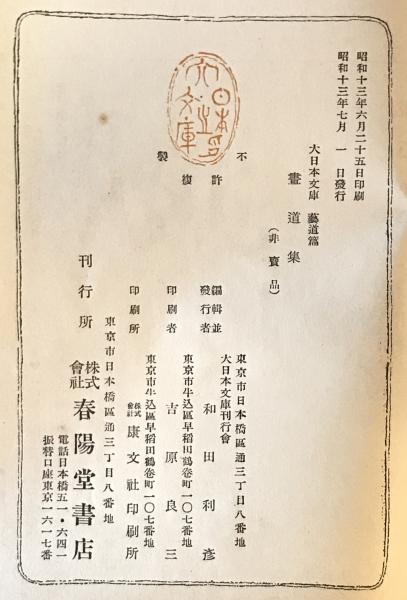 昭和十三年六月二十五日印刷
昭和十三年七月　一　日發行
大日本文庫　藝道篇
畫道集
（非賣品）
不許複製
大日本文庫
東京市日本橋區通三丁目八番地
大日本文庫刊行會
編輯並發行者　和田利彦
東京市牛込區早稻田鶴巻町一〇七番地
印刷者　吉原良三
東京市牛込區早稻田鶴巻町一〇七番地
印刷所　株式會社　康文社印刷所
東京市日本橋區通三丁目八番地
刊行所　株式會社　春陽堂書店
電話日本橋五一・六四一
振替口座東京一六一七番